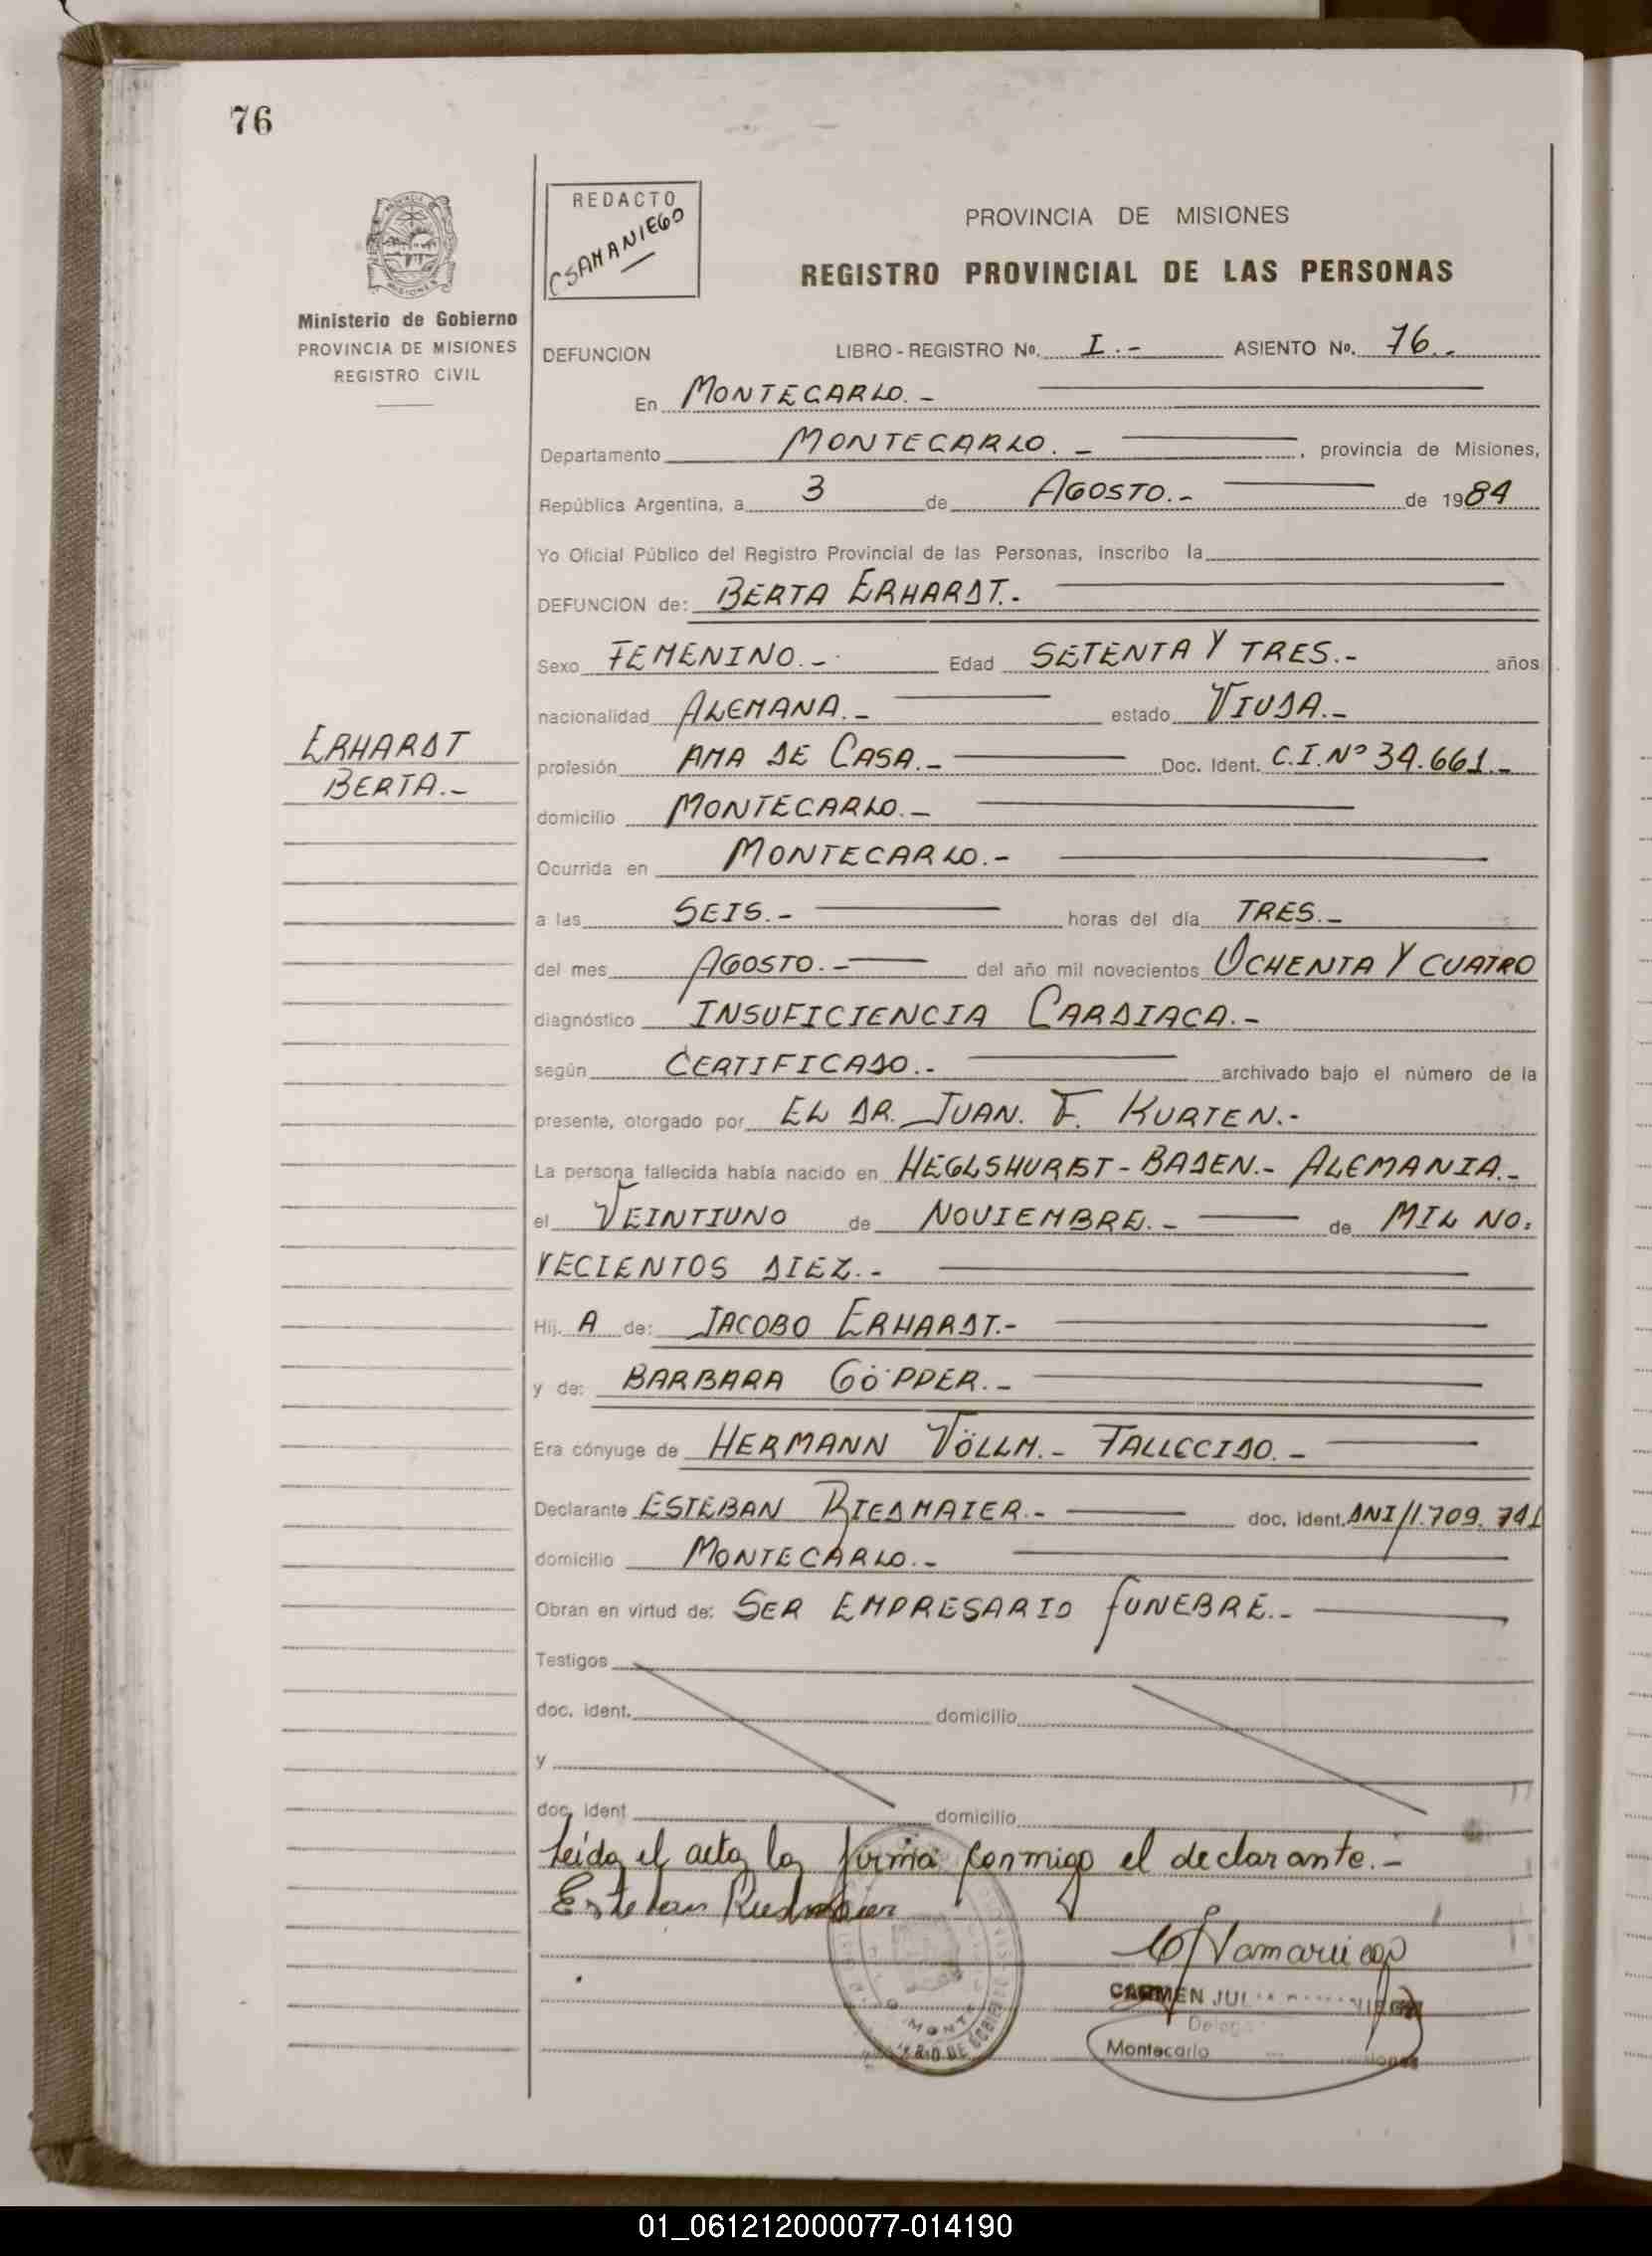 76
REDACTO
CSAMANIEGO
PROVINCIA DE MISIONES
REGISTRO PROVINCIAL DE LAS PERSONAS
Ministerio de Gobierno
PROVINCIA DE MISIONES
REGISTRO CIVIL
DEFUNCION LIBRO - REGISTRO Nº. I.- ASIENTO Nº. 76.-
En MONTECARLO.-
Departamento MONTECARLO.- , provincia de Misiones,
República Argentina, a 3 de AGOSTO.- de 1984
Yo Oficial Público del Registro Provincial de las Personas, inscribo la
DEFUNCION de: BERTA ERHARDT.-
Sexo FEMENINO.- Edad SETENTA Y TRES.- años
nacionalidad ALEMANA.- estado VIUDA.-
ERHARDT
BERTA.-
profesión AMA DE CASA.- Doc. Ident. C.I.Nº 34.661.-
domicilio MONTECARLO.-
Ocurrida en MONTECARLO.-
a las SEIS.- horas del día TRES.-
del mes AGOSTO.- del año mil novecientos OCHENTA Y CUATRO
diagnóstico INSUFICIENCIA CARDIACA.-
según CERTIFICADO.- archivado bajo el número de la
presente, otorgado por EL DR. JUAN. F. KURTEN.-
La persona fallecida había nacido en HEGLSHURST-BADEN.- ALEMANIA.-
el VEINTIUNO de NOVIEMBRE.- de MIL NO:
VECIENTOS DIEZ.-
Hij A de: JACOBO ERHARDT.-
y de: BARBARA GÖPPER.-
Era cónyuge de HERMANN VÖLLM.- FALLECIDO.-
Declarante ESTEBAN RIEDMAIER.- doc. ident. DNI/1.709.741
domicilio MONTECARLO.-
Obran en virtud de: SER EMPRESARIO FUNEBRE.-
Testigos
doc. ident. domicilio
y
doc. ident domicilio
Leída el acta la firma conmigo el declarante.-
Esteban Riedmaier
CARMEN
Montecarlo
01_061212000077-014190